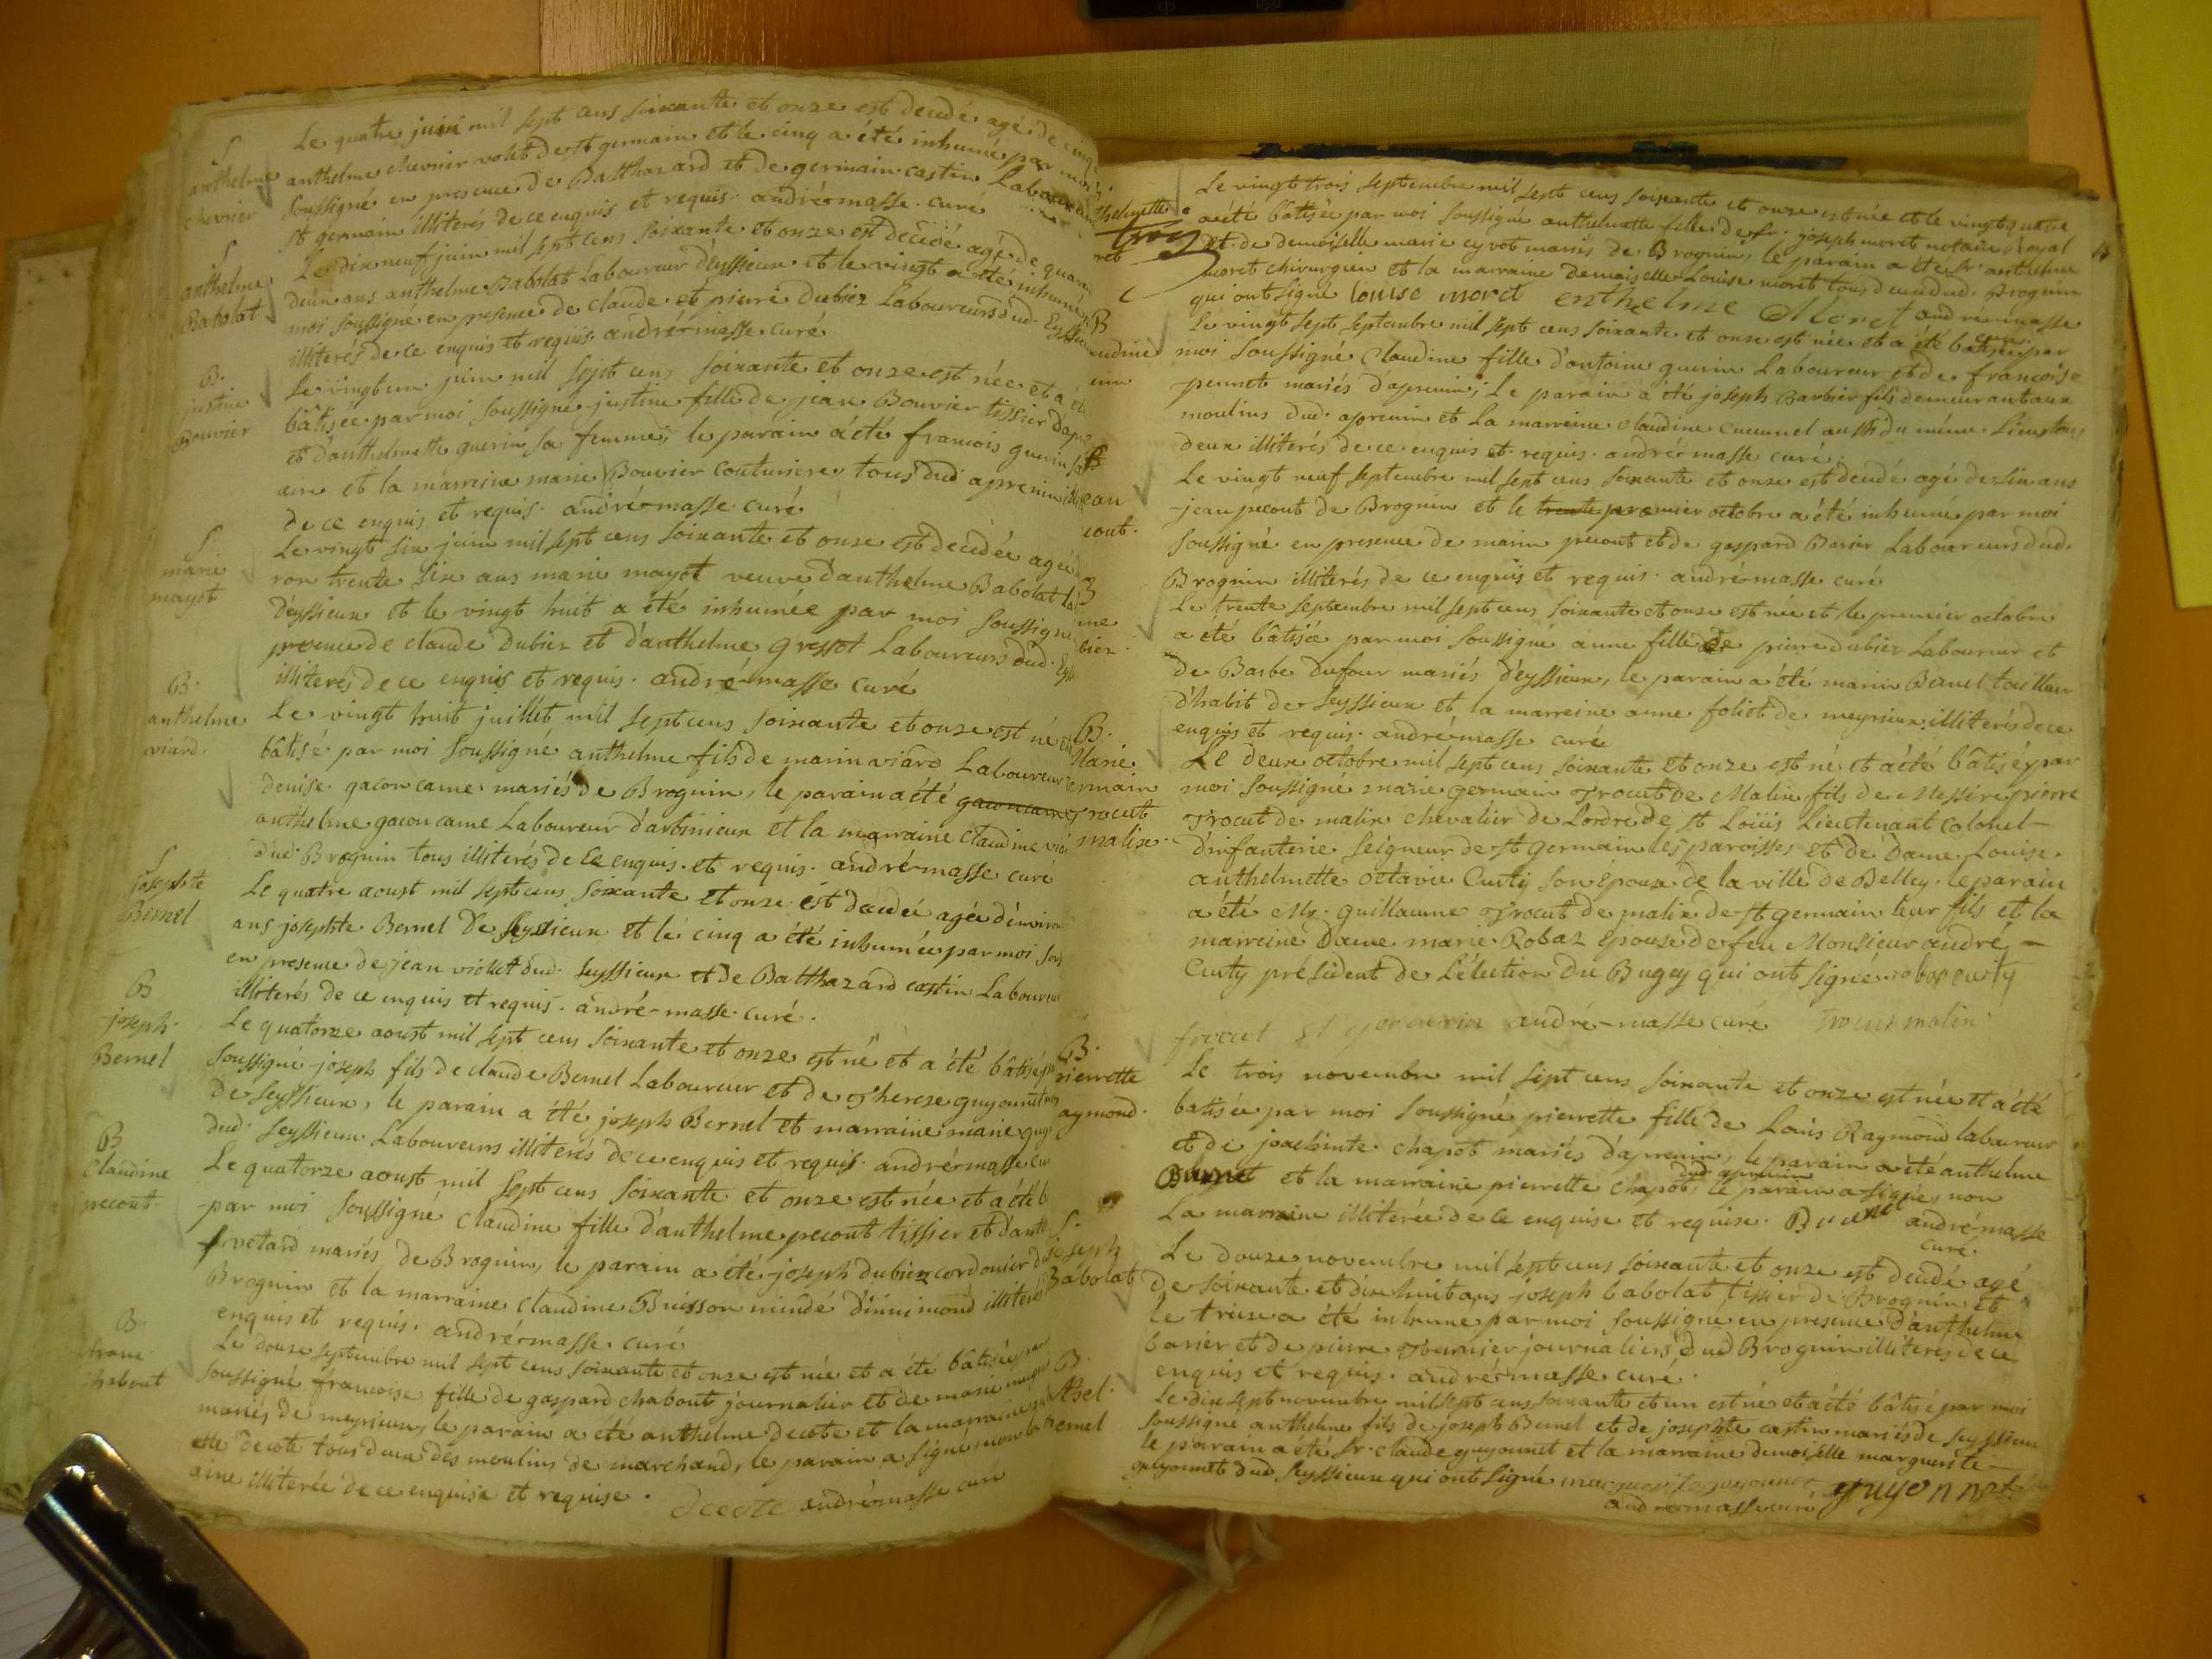 S
anthelme
chevrier
Le quatre juin mil sept cens soixante et onze est decedé agé de
anthelme chevrier volet de st germain et le cinq a été inhumé par moi
soussigné en presence de Balthazard et de germain castin Laboureurs
st germain illiterés de ce enquis et requis. andré-masse curé
S
anthelme
Babolat
Le dix neuf juin mil sept cens soixante et onze est decedé agé de quarante
deux ans anthelme Babolat Laboureur d'eyssieux et le vingt a été inhumé
moi soussigné en presence de claude et pierre dubiez Laboureurs dud.
illiterés de ce enquis et requis. andré-masse curé
B.
justine
Bouvier
Le vingt un juin mil sept cens soixante et onze est née et a été
bâtisée par moi soussigné justine fille de jean Bouvier tissier
et d'anthelmette guerin sa femme; le parain a été francois guerin
et la marreine marie Bouvier couturiere, tous dud aprenin
de ce enquis et requis. andré-masse curé
S.
marie
mayot
Le vingt six juin mil sept cens soixante et onze est decedée agée
ron trente six ans marie mayot veuve d'anthelme Babolat
d'eyssieux et le vingt huit a été inhumée par moi soussigné
presence de claude dubiez et d'anthelme grossot Laboureurs dud.
illiterés de ce enquis et requis. andré-masse curé
B.
anthelme
viard.
Le vingt huit juillet mil sept cens soixante et onze est né
bâtisé par moi soussigné anthelme fils de marin viard Laboureur
denise gaconcame mariés de Brognin, le parain a été
anthelme gaconcame Laboureur d'arbinieux et la marraine claudine
dud. Brognin tous illiterés de ce enquis et requis. andré-masse curé
S
josephte
Bernel
Le quatre aoust mil sept cens soixante et onze est decedée agée d'environ
ans josephte Bernel de seyssieux et le cinq a été inhumée par moi
en presence de jean violet dud. seyssieux et de Balthazard castin Laboureurs
illiterés de ce enquis et requis. andré-masse curé.
B
joseph
Bernel
Le quatorze aoust mil sept cens soixante et onze est né et a été bâtisé
soussigné joseph fils de claude Bernel Laboureur et de Therese guyonnet
de seyssieux, le parain a été joseph Bernel et marraine marie
dud. seyssieux Laboureurs illiterés de ce enquis et requis. andré-masse
B
Claudine
pecout
Le quatorze aoust mil sept cens soixante et onze est née et a été
par moi soussigné claudine fille d'anthelme pecout tissier et
vetard mariés de Brognin, le parain a été joseph dubiez cordonier
Brognin et la marraine claudine Buisson illiterés
enquis et requis. andré-masse curé
B.
Le douze septembre mil sept cens soixante et onze est née et a été bâtisée par
soussigné francoise fille de gaspard chabout journalier et de marie
mariés de meyrieux, le parain a été anthelme decote et la marraine
decote tous deux des moulins de marchand, le parain a signé, non la
aine illiterée de ce enquise et requise.
decote andré-masse curé
Le vingt trois septembre mil sept cens soixante et onze est née et le vingt quatre
a été bâtisée par moi soussigné anthelmette fille de sr. joseph moret notaire royal
et de demoiselle marie cyvot mariés de Brognin, le parain a été sr. anthelme
moret chirurgien et la marraine demoiselle Louise moret tous deux dud. Brognin
qui ont signé louise moret enthelme Moret andré-masse
Le vingt sept septembre mil sept cens soixante et onze est née et a été bâtisée par
moi soussigné claudine fille d'antoine guerin Laboureur et de francoise
pernet mariés d'aprenin; Le parain a été joseph Barbier fils demeurant aux
moulins dud. aprenin et La marreine claudine cucunel aussi du même Lieu tous
deux illiterés de ce enquis et requis. andré-masse curé.
Le vingt neuf septembre mil sept cens soixante et onze est decedé agé de six ans
jean pecout de Brognin et le premier octobre a été inhumé par moi
soussigné en presence de marin pecout et de gaspard Barier Laboureurs dud.
Brognin illiterés de ce enquis et requis. andré-masse curé
Le trente septembre mil sept cens soixante et onze est née et le premier octobre
a été bâtisée par moi soussigné anne fille de pierre dubiez Laboureur et
de Barbe dufour mariés d'eyssieux, le parain a été marin Bernel tailleur
d'habit de seyssieux et la marreine anne foliet de meyrieux illiterés de ce
enquis et requis. andré-masse curé
B.
Marie
germain
Trocut
malix.
Le deux octobre mil sept cens soixante et onze est né et a été bâtisé par
moi soussigné marie germain Trocut De Malix fils de Messire pierre
Trocut de malix chevalier de Lordre de st Loüis Lieutenant colonel-
d'infanterie seigneur de st germain les paroisses et de Dame Louise
anthelmette octavie Cuity son épouse de la ville de Belley. le parain
a été Mr. guillaume Trocut de malix de st germain leur fils et la
marreine Dame marie Robaz épouse de feu Monsieur andré -
Cuity président de L'élection du Bugey qui ont signé. robaz cuity
trocut st germain andré-masse curé Trocut malix
B.
pierrette
Raymond.
Le trois novembre mil sept cens soixante et onze est née et a été
batisée par moi soussigné pierrette fille de Louis Raymond laboureur
et de joachinte chapot mariés d'aprenin, le parain a été anthelme
Burnet et la marraine pierrette chapot dud aprenin le parain a signé, non
La marraine illiterée de ce enquise et requise. Burnet andré-masse
curé.
S.
Joseph
Babolat
Le douze novembre mil sept cens soixante et onze est decedé agé
de soixante et dix huit ans joseph babolat, tissier de Brognin et
le treize a été inhumé par moi soussigné en presence d'anthelme
barier et de pierre Tournier journaliers dud Brognin illiterés de ce
enquis et requis. andré-masse curé.
B.
Athel.
Bernel
Le dix sept novembre mil sept cens soixante et un est né et a été bâtisé par moi
soussigné anthelme fils de joseph Bernel et de josephte castin mariés de seyssieux
le parain a été sr. claude guyonnet et la marraine demoiselle marguerite-
guyonnet dud seyssieux qui ont signé marguerite guyonnet, guyonnet
andré-masse curé